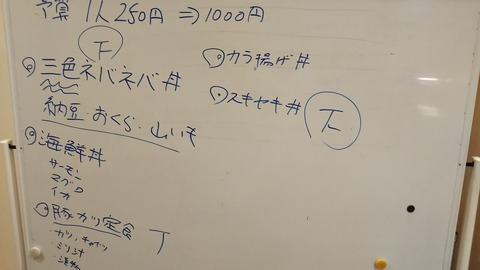 予算 1人 250円 ⇒ 1000円
下
三色ネバネバ丼
納豆・おくら・山いも
海鮮丼
サーモン
マグロ
イカ
豚カツ定食 丁
・カツ、キャベツ
・ミソ汁
・漬物
カラ揚げ丼
スキヤキ丼 下